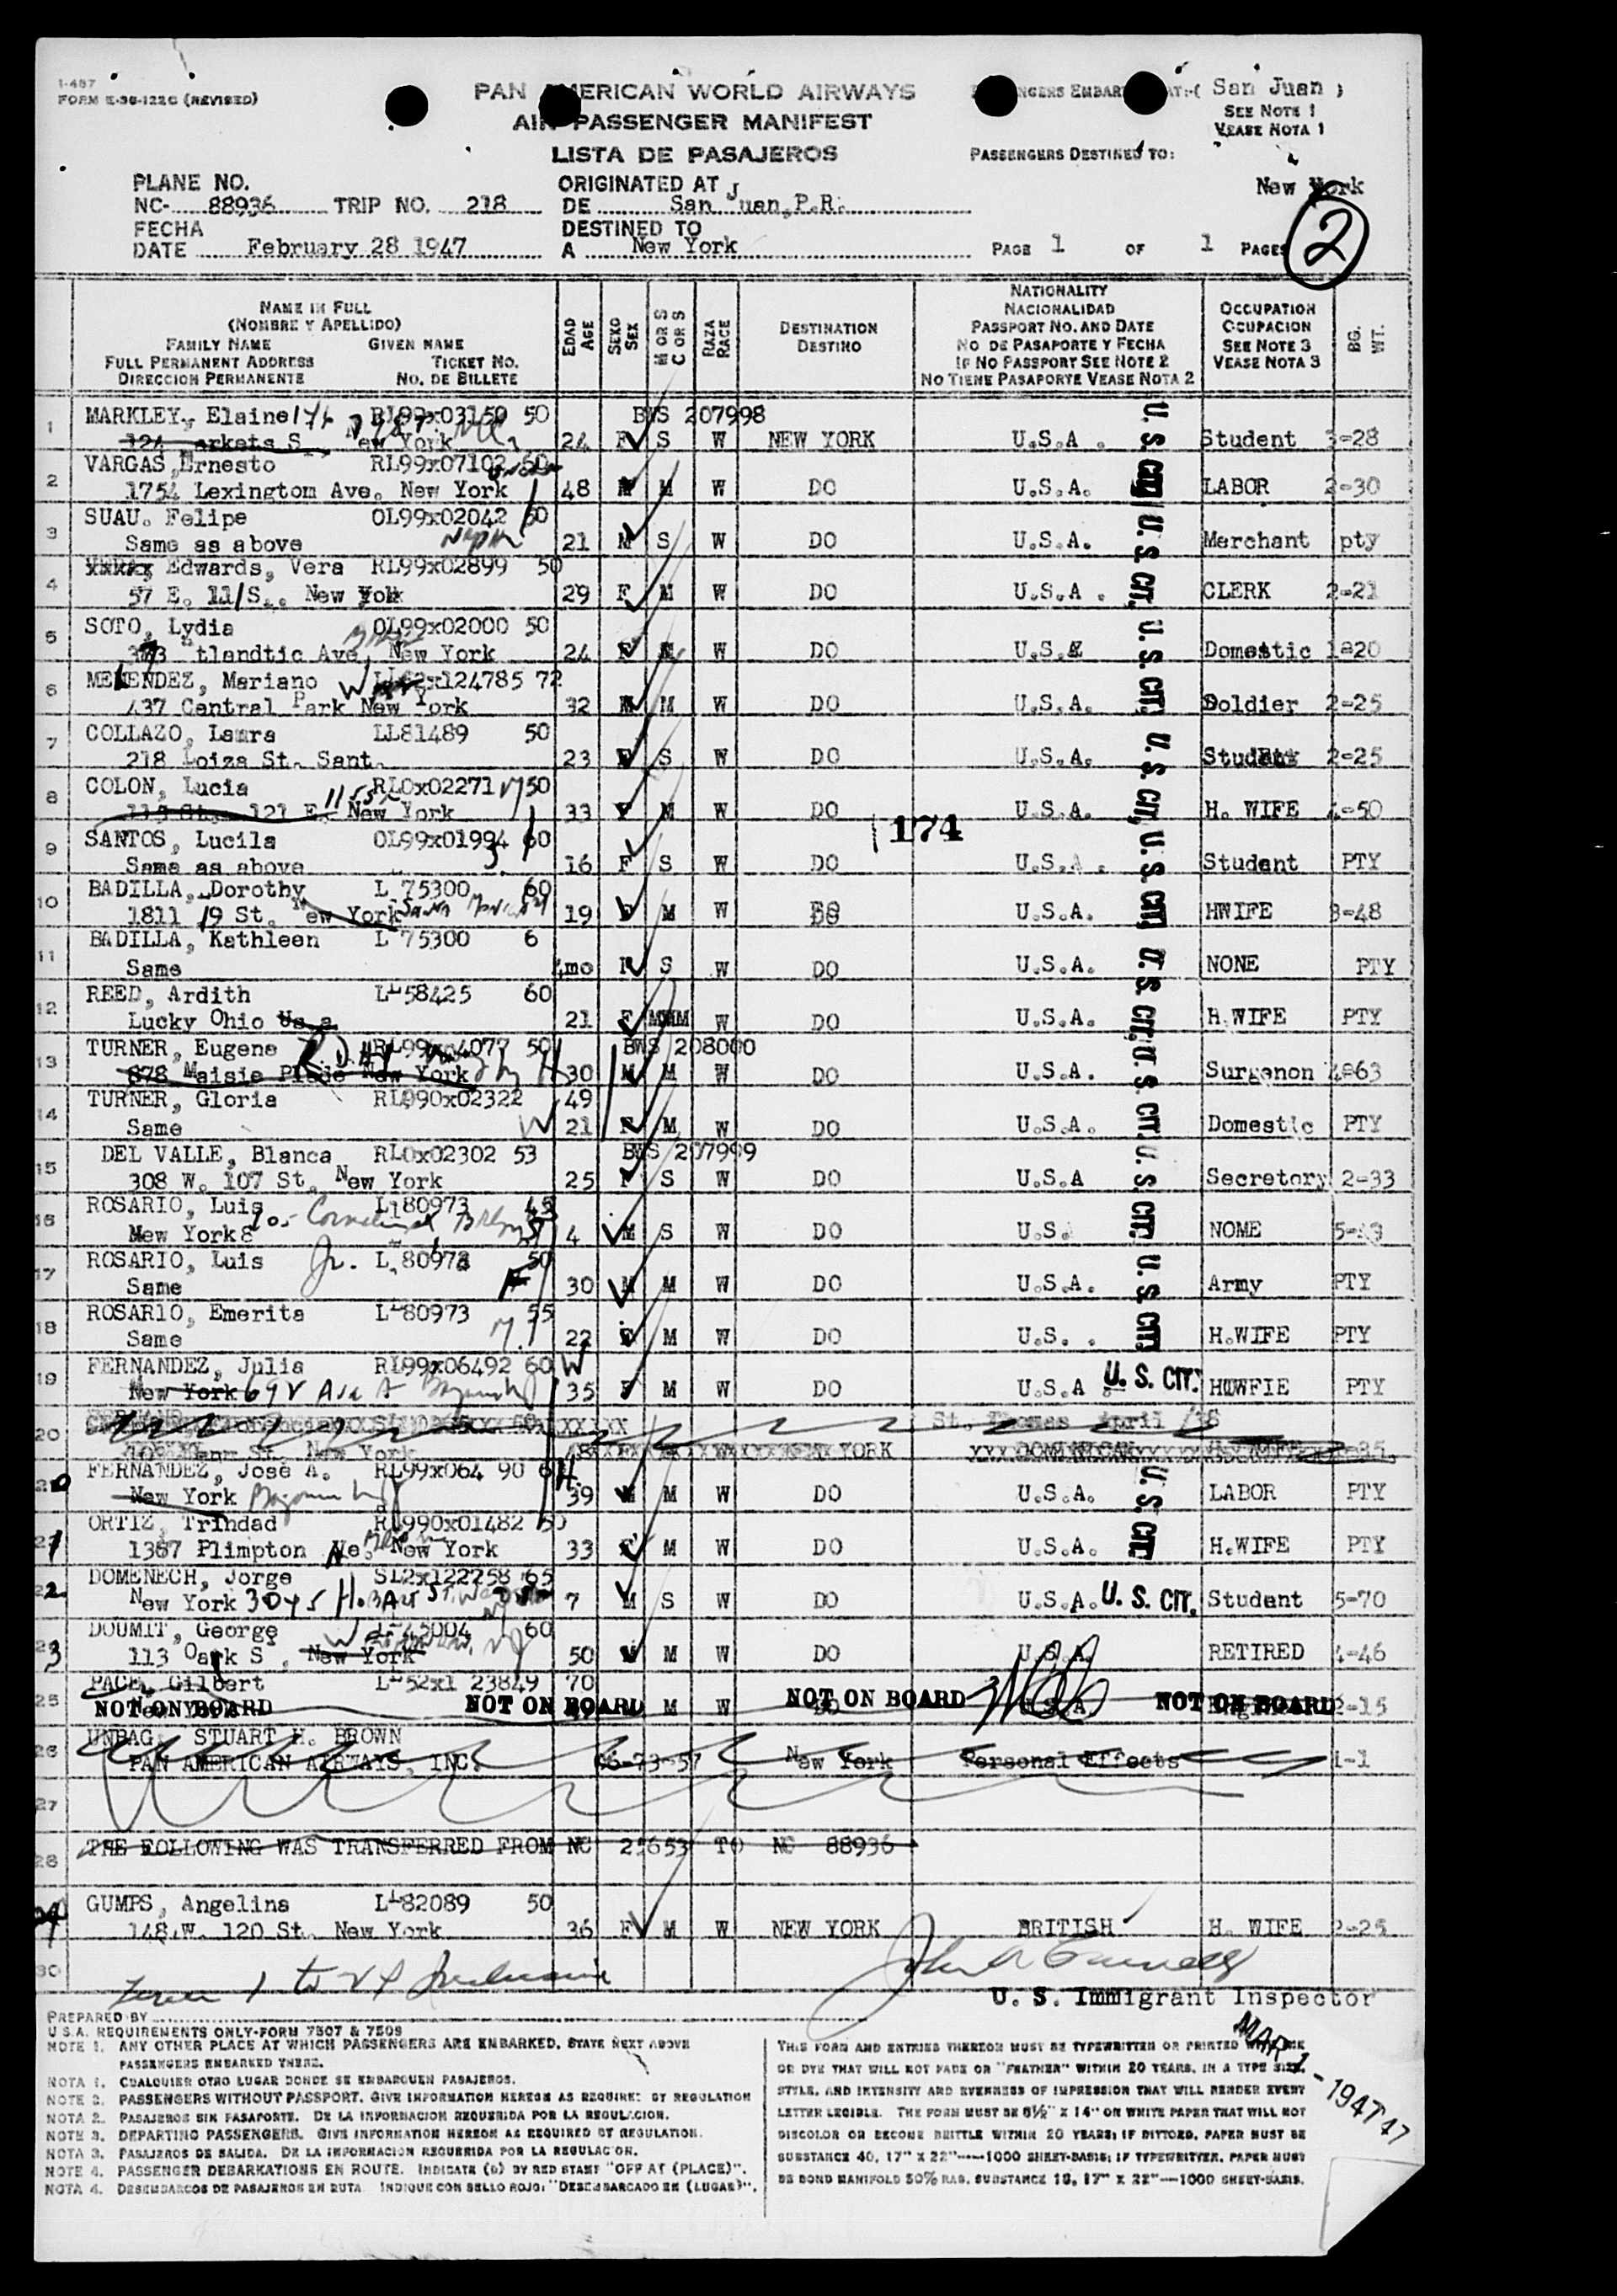 I-487
FORM E-36-122C (REVISED)
PAN AMERICAN WORLD AIRWAYS
AIR PASSENGER MANIFEST
LISTA DE PASAJEROS
San Juan )
SEE NOTE 1
VEASE NOTA 1
PASSENGERS DESTINED TO:
New York
2
PLANE NO.
NC- 88936 TRIP NO. 218
FECHA
DATE February 28 1947
ORIGINATED AT
DE San Juan, P.R.
DESTINED TO
A New York
PAGE 1 OF 1 PAGES
NAME IN FULL
(NOMBRE Y APELLIDO)
FAMILY NAME GIVEN NAME
FULL PERMANENT ADDRESS TICKET NO.
DIRECCION PERMANENTE NO. DE BILLETE
EDAD AGE
SEXO SEX
M OR S C OR S
RAZA RACE
DESTINATION
DESTINO
NATIONALITY
NACIONALIDAD
PASSPORT NO. AND DATE
NO DE PASAPORTE Y FECHA
IF NO PASSPORT SEE NOTE 2
NO TIENE PASAPORTE VEASE NOTA 2
OCCUPATION
OCUPACION
SEE NOTE 3
VEASE NOTA 3
BG. WT.
1 MARKLEY, Elaine RL99x03150 50 BWS 207998
New York 24 F S W NEW YORK U.S.A. U. S. CIT. Student 3-28
2 VARGAS, Ernesto RL99x07102
1754 Lexingtom Ave. New York 48 M M W DO U.S.A. LABOR 2-30
3 SUAU. Felipe OL99x02042 50
Same as above 21 M S W DO U.S.A. U. S. CIT. Merchant pty
4 Edwards, Vera RL99x02899 50
57 E. 11/S.. New York 29 F M W DO U.S.A. CLERK 2-21
5 SOTO, Lydia OL99x02000 50
tlandtic Ave, New York 24 F W DO U. S. CIT. Domestic 1-20
6 MENENDEZ, Mariano 72
437 Central Park New York 32 M M W DO U.S.A. Soldier 2-25
7 COLLAZO, Laura LL81489 50
218 Loiza St. Sant. 23 F S W DO U.S.A. U. S. CIT. Student 2-25
8 COLON, Lucia RL0x02271 50
121 E. New York 33 F M W DO U.S.A. H. WIFE 4-50
174
9 SANTOS, Lucila OL99x01994 60
Same as above 16 F S W DO U.S.A. U. S. CIT. Student PTY
10 BADILLA, Dorothy L 75300 60
1811 19 St. New York 19 F M W DO U.S.A. HWIFE 3-48
11 BADILLA, Kathleen L 75300 6
Same 4mo F S W DO U.S.A. U. S. CIT. NONE PTY
12 REED, Ardith L 58425 60
Lucky Ohio 21 F W DO U.S.A. H.WIFE PTY
13 TURNER, Eugene 50 BWS 208000
878 Maisie Place New York 30 M M W DO U.S.A. U. S. CIT. Surganon 4-63
14 TURNER, Gloria RL990x02322 49
Same 21 F M W DO U.S.A. Domestic PTY
15 DEL VALLE, Blanca RL0x02302 53 BWS 207999
308 W. 107 St. New York 25 F S W DO U.S.A U. S. CIT. Secretory 2-33
16 ROSARIO, Luis L 80973
New York 4 M S W DO U.S. NOME
17 ROSARIO, Luis Jr. L 80973 50
Same 30 M M W DO U.S.A. U. S. CIT. Army PTY
18 ROSARIO, Emerita L 80973 55
Same 22 F M W DO U.S. . H.WIFE PTY
19 FERNANDEZ, Julia RL99x06492 60
New York 35 F M W DO U.S.A U. S. CIT. HWFIE PTY
20 St. Thomas April
New York
FERNANDEZ, Jose A. RL99x064 90
New York 39 M M W DO U.S.A. U. S. CIT. LABOR PTY
ORTIZ, Trindad RL990x01482 50
1387 Plimpton Ave. New York 33 F M W DO U.S.A. H.WIFE PTY
22 DOMENECH, Jorge SL2x122758 65
New York 7 M S W DO U.S.A. U. S. CIT. Student 5-70
3 DOUMIT, George L 45004 60
113 Oark S . New York 50 M M W DO U.S.A. RETIRED 4-46
25 PACE, Gilbert L 52x1 23849 70
NOT ON BOARD NOT ON BOARD M W NOT ON BOARD U.S.A. NOT ON BOARD 2-15
26 UNBAG, STUART H. BROWN
PAN AMERICAN AIRWAYS, INC. 06-73-57 New York Personal Effects 1-1
27
28 THE FOLLOWING WAS TRANSFERRED FROM NC 25653 TO NC 88936
GUMPS, Angelina L 82089 50
148.W. 120 St. New York 36 F M W NEW YORK BRITISH H. WIFE 2-25
30
1 to 24 Inclusive
U. S. Immigrant Inspector
MAR 1 - 1947
PREPARED BY
U.S.A. REQUIREMENTS ONLY-FORM 7507 & 7509
NOTE 1. ANY OTHER PLACE AT WHICH PASSENGERS ARE EMBARKED, STATE NEXT ABOVE
PASSENGERS EMBARKED THERE.
NOTA 1. CUALQUIER OTRO LUGAR DONDE SE EMBARQUEN PASAJEROS.
NOTE 2. PASSENGERS WITHOUT PASSPORT. GIVE INFORMATION HEREON AS REQUIRED BY REGULATION
NOTA 2. PASAJEROS SIN PASAPORTE. DE LA INFORMACION REQUERIDA POR LA REGULACION.
NOTE 3. DEPARTING PASSENGERS. GIVE INFORMATION HEREON AS REQUIRED BY REGULATION.
NOTA 3. PASAJEROS DE SALIDA. DE LA INFORMACION REQUERIDA POR LA REGULACION.
NOTE 4. PASSENGER DEBARKATIONS EN ROUTE. INDICATE (b) BY RED STAMP "OFF AT (PLACE)".
NOTA 4. DESEMBARCOS DE PASAJEROS EN RUTA. INDIQUE CON SELLO ROJO: "DESEMBARCADO EN (LUGAR)".
THIS FORM AND ENTRIES THEREON MUST BE TYPEWRITTEN OR PRINTED WITH INK
OR DYE THAT WILL NOT FADE OR "FEATHER" WITHIN 20 YEARS, IN A TYPE SIZE,
STYLE, AND INTENSITY AND EVENNESS OF IMPRESSION THAT WILL RENDER EVERY
LETTER LEGIBLE. THE FORM MUST BE 8½" X 14" ON WHITE PAPER THAT WILL NOT
DISCOLOR OR BECOME BRITTLE WITHIN 20 YEARS; IF DITTOED, PAPER MUST BE
SUBSTANCE 40, 17" X 22"—1000 SHEET-BASIS; IF TYPEWRITTEN, PAPER MUST
BE BOND MANIFOLD 50% RAG. SUBSTANCE 18, 17" X 22"—1000 SHEET-BASIS.